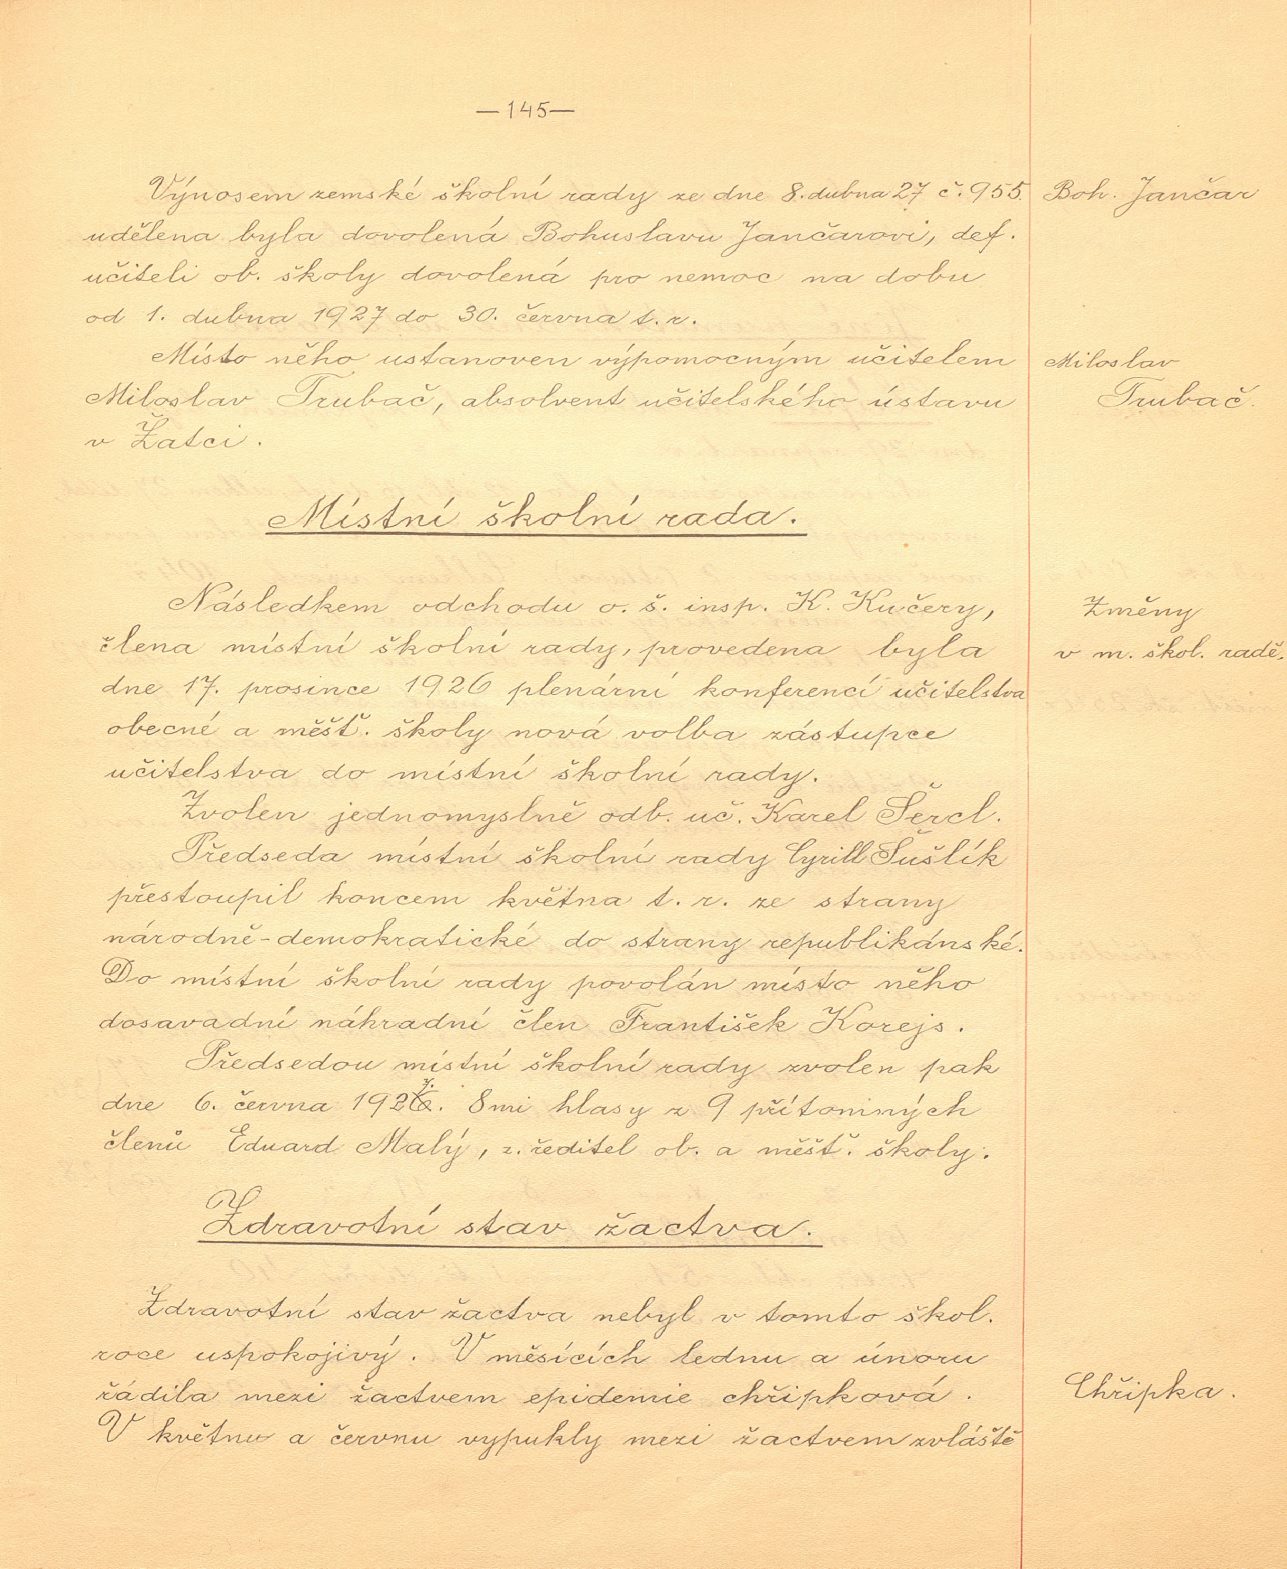 —145—
Výnosem zemské školní rady ze dne 8. dubna 27 č. 955
Boh. Jančar
udělena byla dovolená Bohuslavu Jančarovi, def.
učiteli ob. školy dovolená pro nemoc na dobu
od 1. dubna 1927 do 30. června t. r.
Místo něho ustanoven výpomocným učitelem
Miloslav
Miloslav Trubač, absolvent učitelského ústavu
Trubač.
v Žatci.
Místní školní rada.
Následkem odchodu o. š. insp. K. Kučery,
Změny
člena místní školní rady, provedena byla
v m. škol. radě.
dne 17. prosince 1926 plenární konferencí učitelstva
obecné a měšť. školy nová volba zástupce
učitelstva do místní školní rady.
Zvolen jednomyslně odb. uč. Karel Šercl.
Předseda místní školní rady Cyrill Šušlík
přestoupil koncem května t. r. ze strany
národně-demokratické do strany republikánské.
Do místní školní rady povolán místo něho
dosavadní náhradní člen František Korejs.
Předsedou místní školní rady zvolen pak
dne 6. června 1927. 8mi hlasy z 9 přítomných
členů Eduard Malý, z. ředitel ob. a měšť. školy.
Zdravotní stav žactva.
Zdravotní stav žactva nebyl v tomto škol.
roce uspokojivý. V měsících lednu a únoru
řádila mezi žactvem epidemie chřipková.
Chřipka.
V květnu a červnu vypukly mezi žactvem zvláště